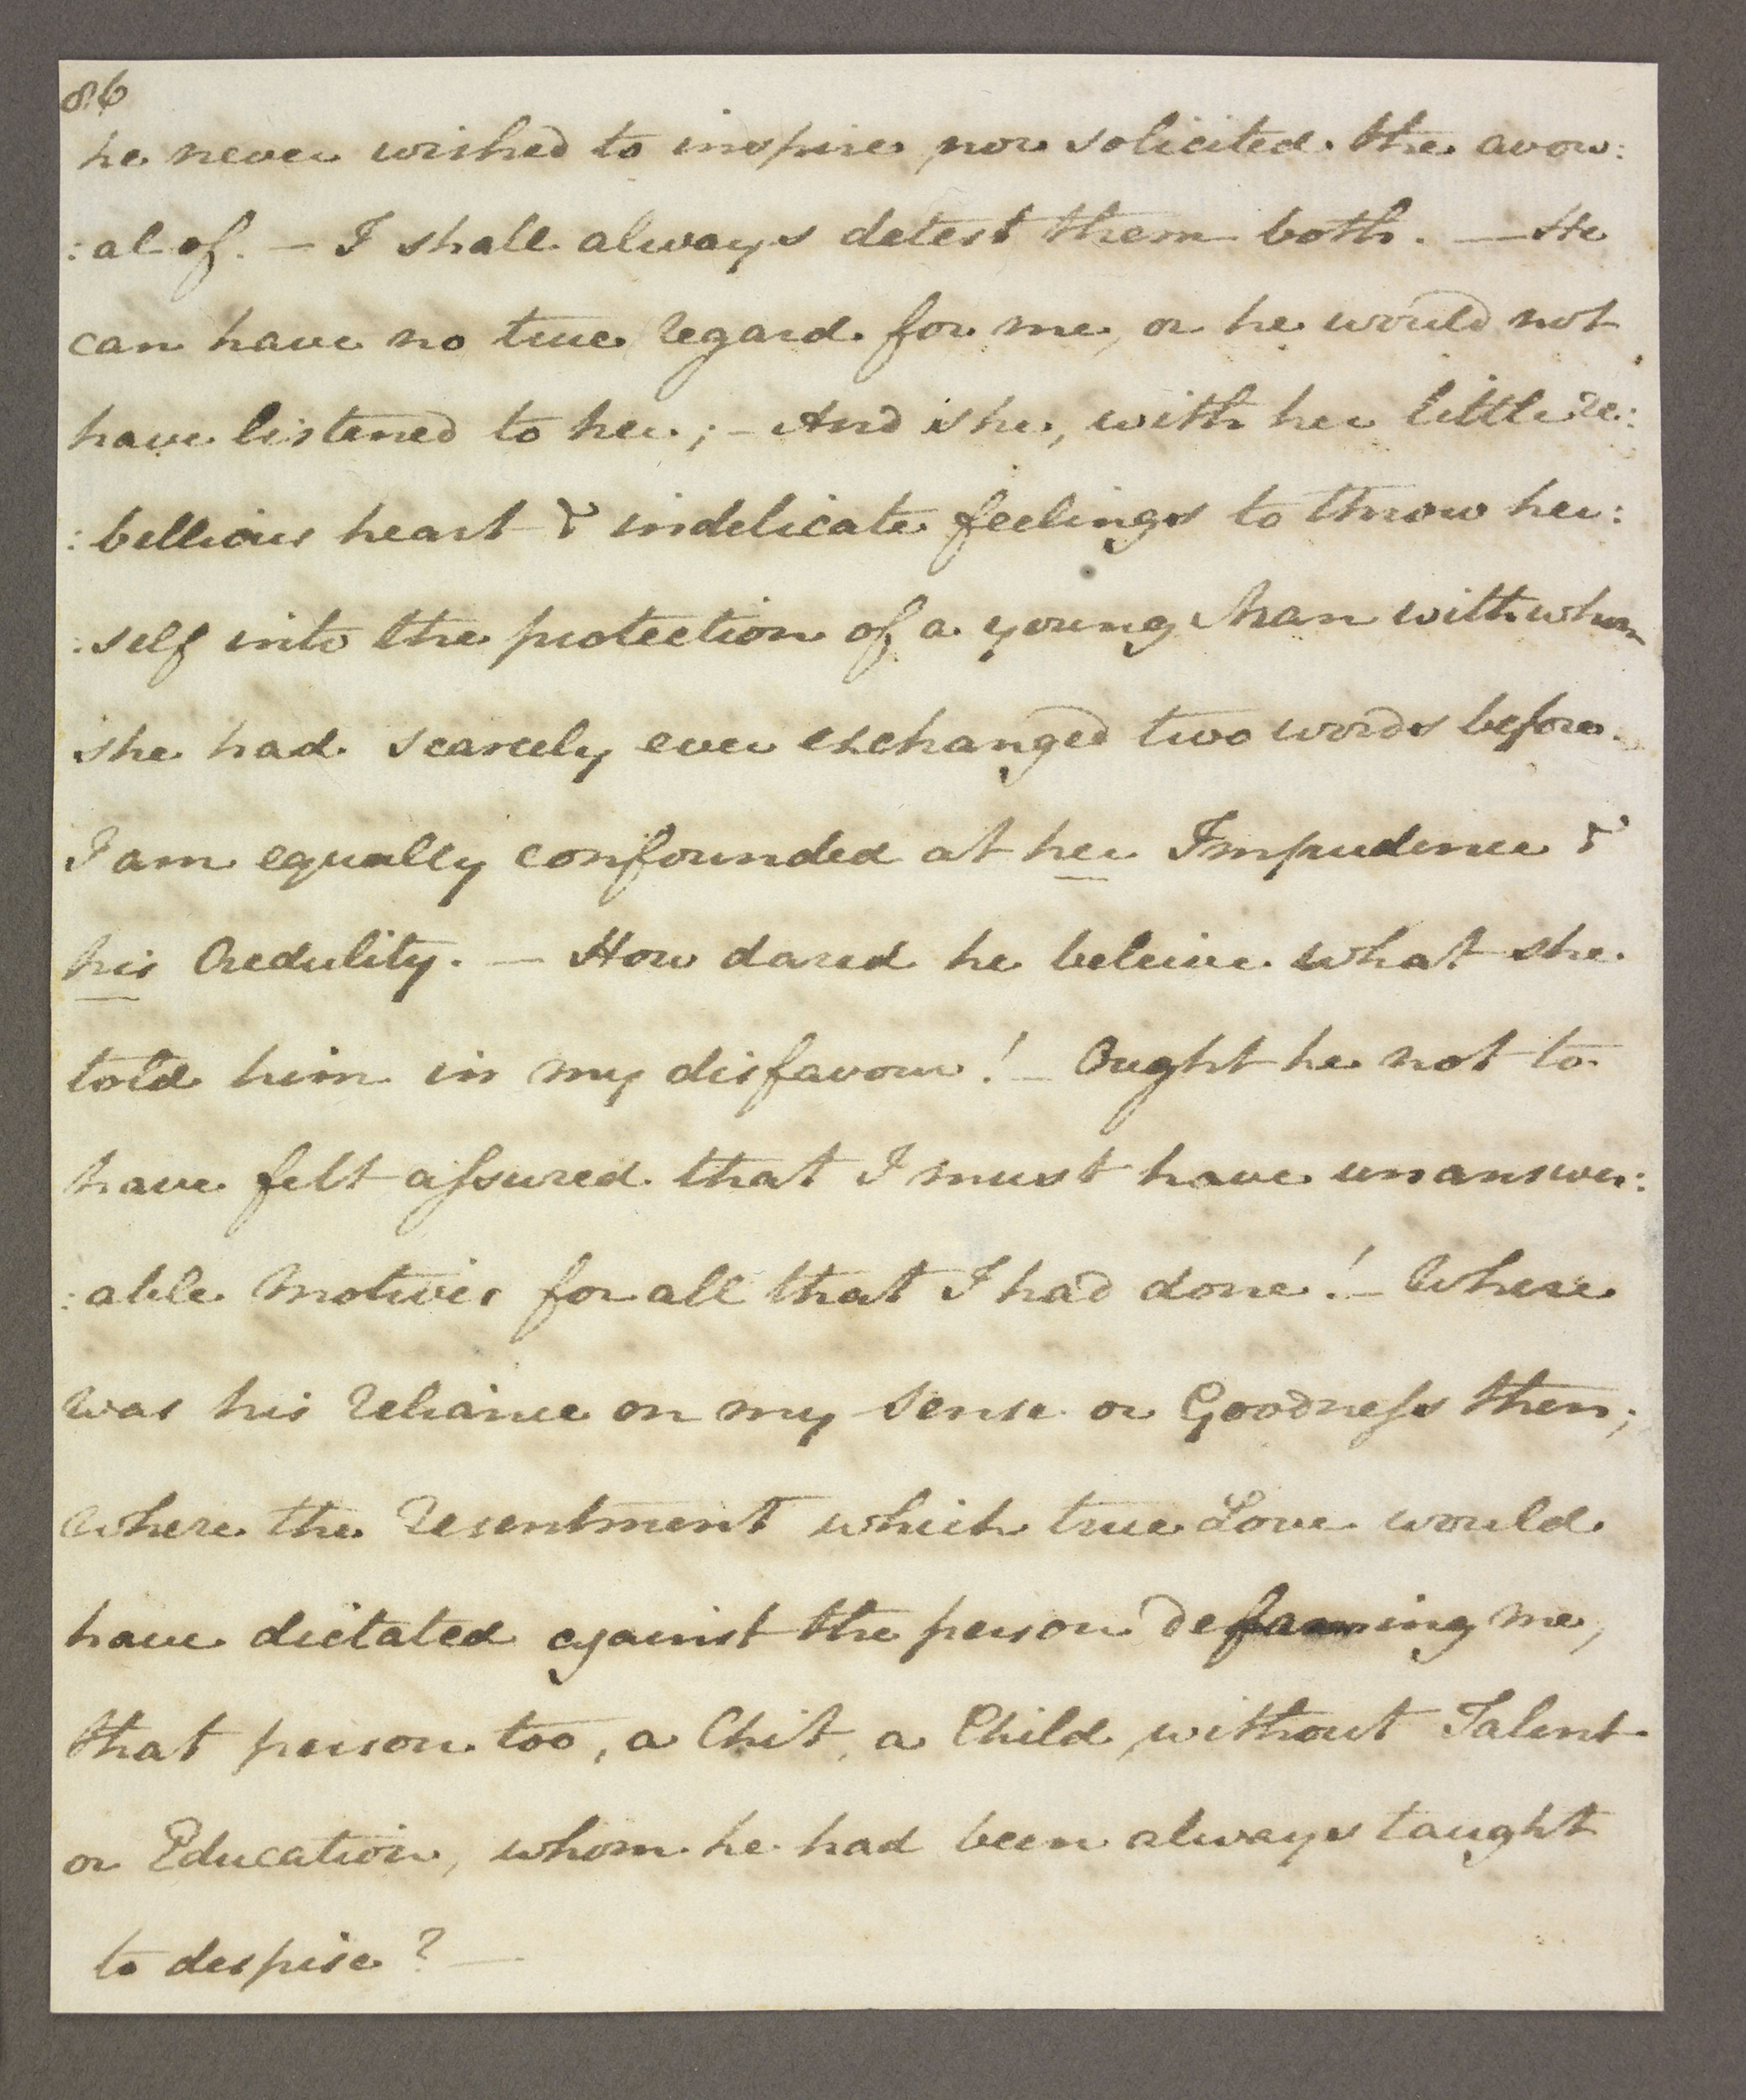 86
he never wished to inspire, nor solicited the avow:
:al of. – I shall always detest them both. — He
can have no true regard for me, or he would not
have listened to her; – And she, with her little re:
:bellious heart & indelicate feelings to throw her:
:self into the protection of a young Man with whom
she had scarcely ever exchanged two words before.
I am equally confounded at her Impudence &
his Credulity. — How dared he beleive what she
told him in my disfavour! – Ought he not to
have felt assured that I must have unanswer:
:able Motives for all that I had done! – Where
was his reliance on my Sense or Goodness then;
where the resentment which true Love would
have dictated against the person defaming me,
that person too, a Chit, a Child, without Talent
or Education, whom he had been always taught
to despise? —